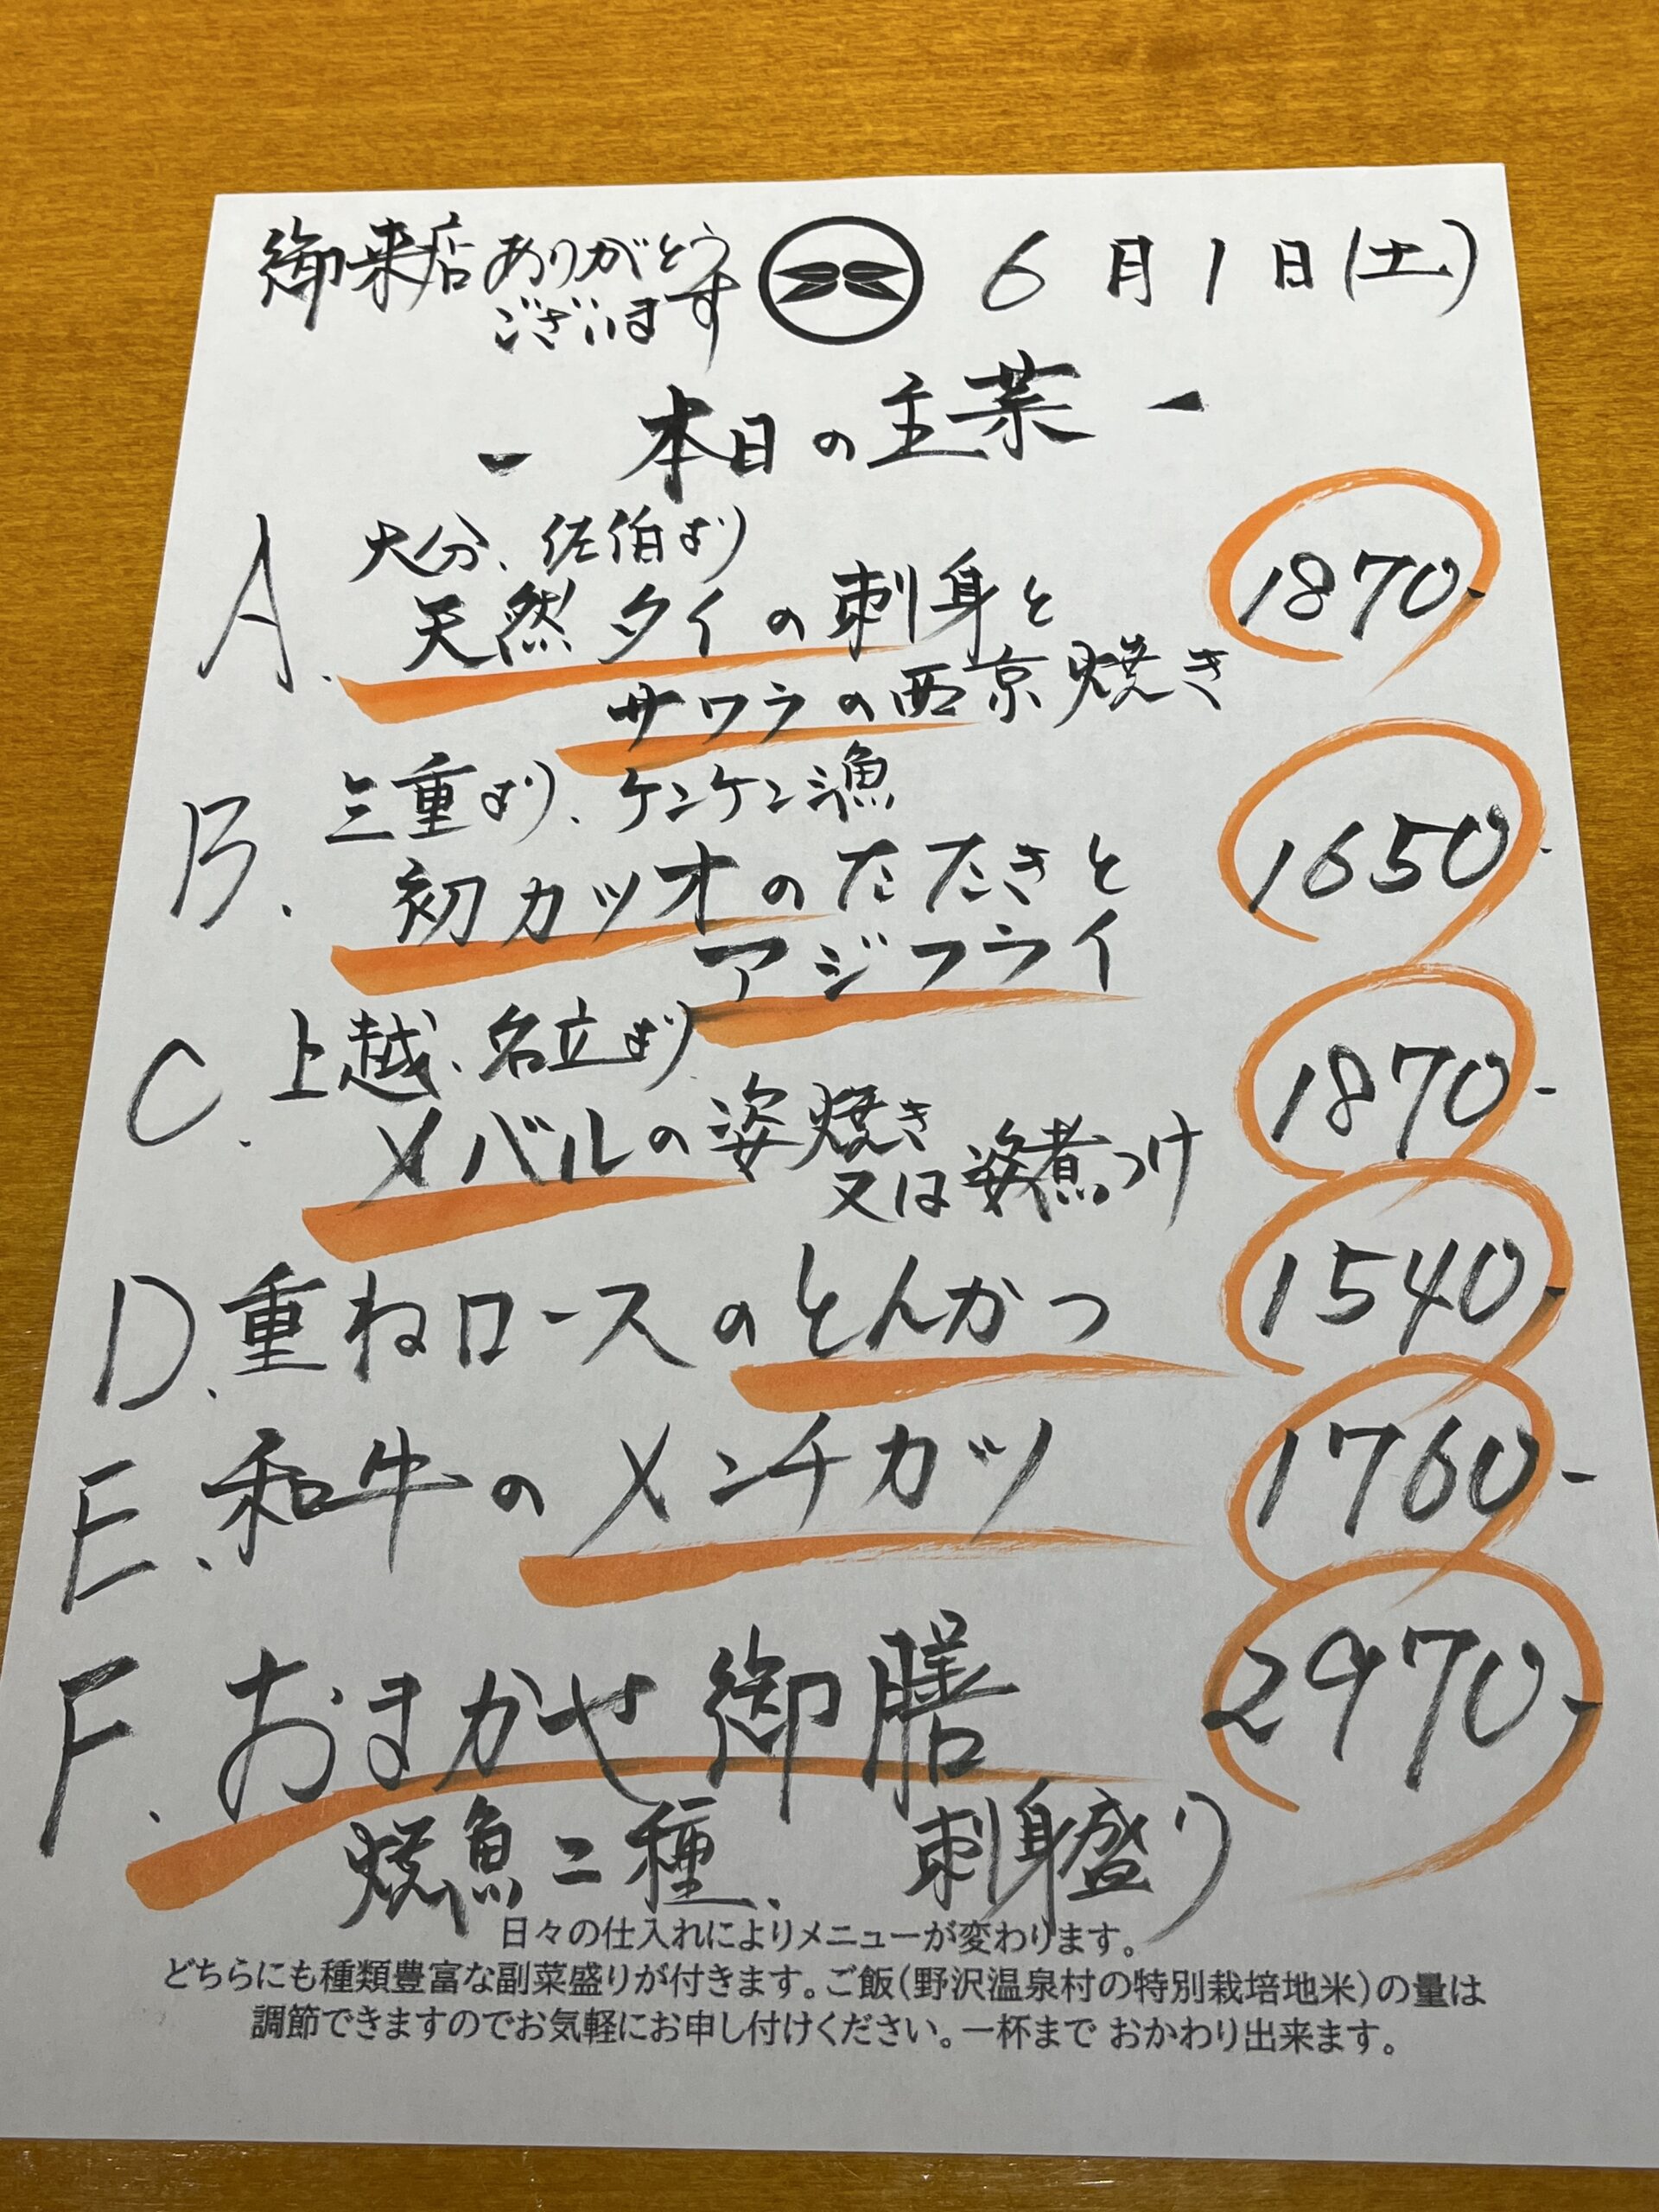 御来店ありがとう
ございます
6月1日(土)
- 本日の主菜 -
A. 大分、佐伯より
天然タイの刺身と
サワラの西京焼き
1870-
B. 三重より、ケンケン漁
初カツオのたたきと
アジフライ
1650-
C. 上越、名立より
メバルの姿焼き
又は姿煮つけ
1870-
D. 重ねロースのとんかつ 1540-
E. 和牛のメンチカツ 1760-
F. おまかせ御膳 2970-
焼魚二種、刺身盛り
日々の仕入れによりメニューが変わります。
どちらにも種類豊富な副菜盛りが付きます。ご飯(野沢温泉村の特別栽培地米)の量は
調節できますのでお気軽にお申し付けください。一杯まで おかわり出来ます。